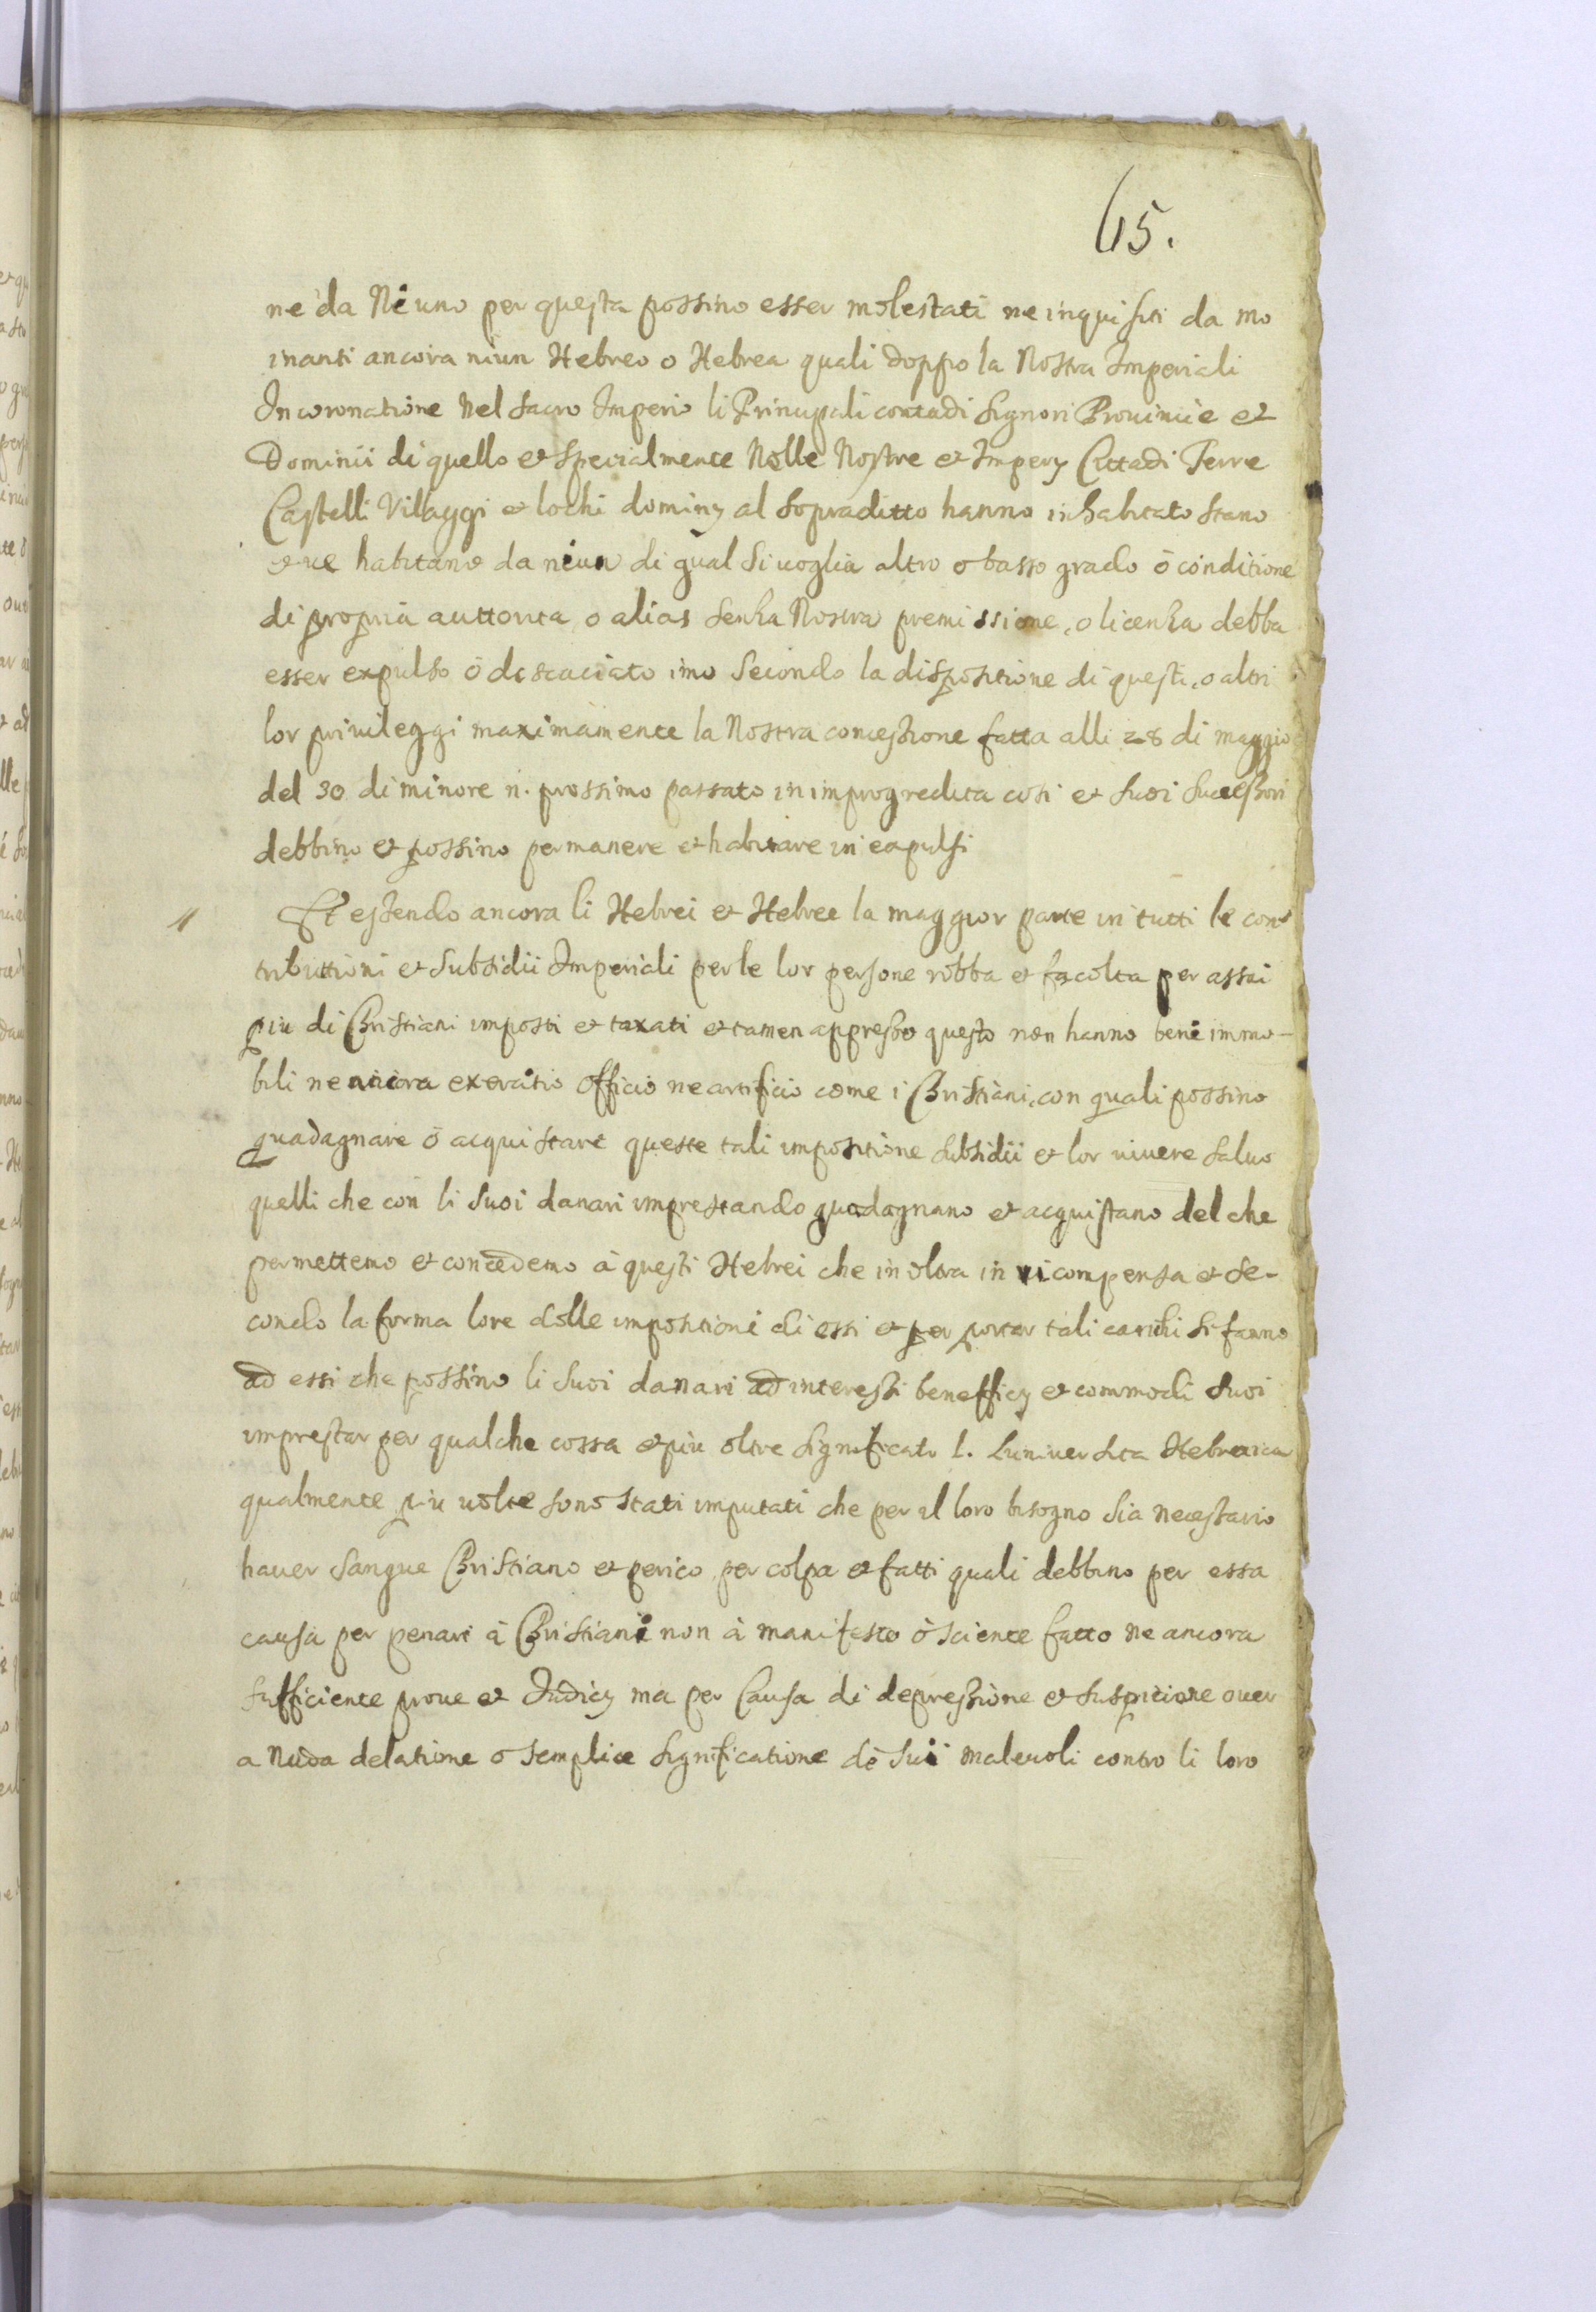 65.
ne da Niuno per questa possino esser molestati ne inquisiti da mo
inanti ancora niun Hebreo o Hebrea quali doppo la Nostra Imperiali
Incoronatione Nel Sacro Imperio li Principali contadi Signori Prouincie et
Dominii di quello et Specialmente Nelle Nostre et Impery Cittadi Terre
Castelli Villaggi et lochi dominy al Sopraditto hanno inhabitato stano
habitano da niun di qual Si uoglia altro o basso grado ò conditione
di propria auttorita o alias Senza Nostra premissione, o licenza debba
esser expulso ò descaciato imo Secondo la dispositione di questi, o altri
lor priuileggi maximamente la Nostra concessione fatta alli 28 di maggio
del 30 di minore n. prossimo passato in improgredita cosi et Suoi Sucessori
debbino et possino permanere et habitare in eapulsi
Et essendo ancora li Hebrei et Hebree la maggior parte in tutti le con
tributtioni et Subsidii Imperiali per le lor persone robba et facolta per assai
piu di Christiani imposti et taxati et tamen appresso questo non hanno beni immo-
bili ne ancora exercitio officio ne artificio come i Christiani, con quali possino
guadagnare ò acquistare queste tali impositione Subsidii et lor uiuere Saluo
quelli che con li Suoi danari imprestando guadagnano et acquistano del che
permettemo et concedemo à questi Hebrei che in olora in ricompensa et Se-
condo la forma lore delle impositioni di essi et per portar tali carichi si fanno
ad essi che possino li Suoi danari ad interessi benefficy et commodi Suoi
imprestar per qualche cossa et piu oltre Significato l. Luniuersita Hebraica
qualmente piu uolte sono Stati imputati che per il loro bisogno Sia necessario
hauer Sangue Christiano et perico per colpa et fatti quali debbino per essa
causa per penari à Christiani non à manifesto ò sciente fatto ne ancora
Sufficiente proue et Indicy ma per Causa di depressione et Suspitione ouer
a Nuda delatione o Semplice Significatione de Sui maleuoli contro li loro